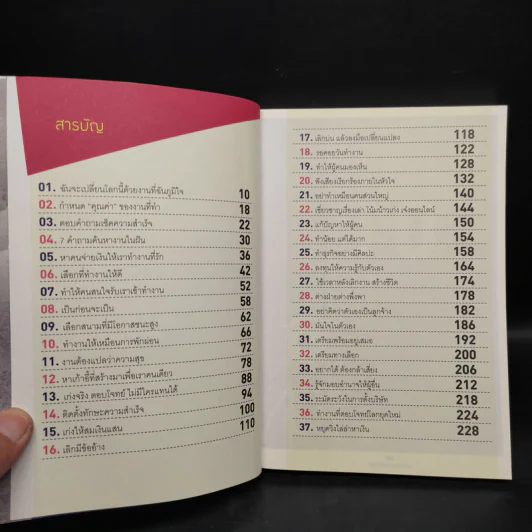 สารบัญ
01. ฉันจะเปลี่ยนโลกนี้ด้วยงานที่ฉันภูมิใจ 10
02. กำหนด "คุณค่า" ของงานที่ทำ 18
03. ตอบคำถามเช็คความสำเร็จ 22
04. 7 คำถามค้นหางานในฝัน 30
05. หาคนจ่ายเงินให้เราทำงานที่รัก 36
06. เลือกที่ทำงานให้ดี 42
07. ทำให้คนสนใจรับเราเข้าทำงาน 52
08. เป็นก่อนจะเป็น 58
09. เลือกสนามที่มีโอกาสชนะสูง 62
10. ทำงานให้เหมือนการพักผ่อน 66
11. งานต้องแปลว่าความสุข 72
12. หาเก้าอี้ที่สร้างมาเพื่อเราคนเดียว 78
13. เก่งจริง ตอบโจทย์ ไม่มีใครแทนได้ 88
14. ติดตั้งทักษะความสำเร็จ 94
15. เก่งให้สมเงินแสน 100
16. เลิกมีข้ออ้าง 110
17. เลิกบ่น แล้วลงมือเปลี่ยนแปลง 118
18. รอคอยวันทำงาน 122
19. ทำให้ผู้คนมองเห็น 128
20. ฟังเสียงเรียกร้องภายในหัวใจ 132
21. อย่าทำเหมือนคนส่วนใหญ่ 140
22. เชี่ยวชาญเรื่องเก่า โน้มน้าวเก่ง เจ๋งออนไลน์ 144
23. แก้ปัญหาให้ผู้คน 150
24. ทำน้อย แต่ได้มาก 154
25. ทำธุรกิจอย่างมีศิลปะ 158
26. ลงทุนให้ความรู้กับตัวเอง 164
27. ใช้เวลาหลังเลิกงาน สร้างชีวิต 174
28. ต่างฝ่ายต่างพึ่งพา 178
29. อย่าคิดว่าตัวเองเป็นลูกจ้าง 182
30. มั่นใจในตัวเอง 186
31. เตรียมพร้อมอยู่เสมอ 192
32. เตรียมทางเลือก 200
33. อยากได้ ต้องกล้าเสี่ยง 206
34. รู้จักมอบอำนาจให้ผู้อื่น 212
35. ระมัดระวังในการตั้งบริษัท 218
36. ทำงานที่ตอบโจทย์โลกยุคใหม่ 224
37. หยุดวิ่งไล่ล่าหาเงิน 228